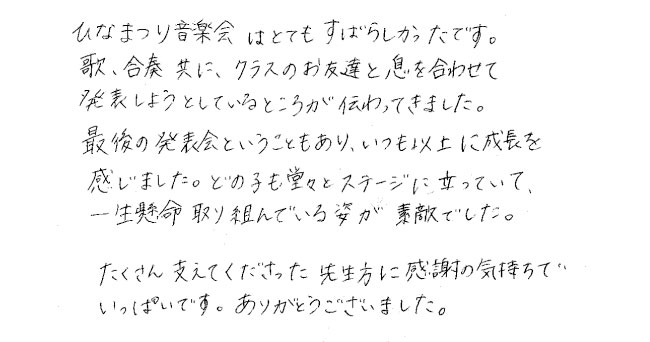 ひなまつり音楽会 はとても すばらしかったです。
歌、合奏 共に、クラスのお友達と息を合わせて
発表しようとしているところが伝わってきました。
最後の発表会ということもあり、いつも以上に成長を
感じました。どの子も堂々とステージに立っていて、
一生懸命 取り組んでいる姿が 素敵でした。
たくさん 支えてくださった 先生方に感謝の気持ちで
いっぱいです。ありがとうございました。